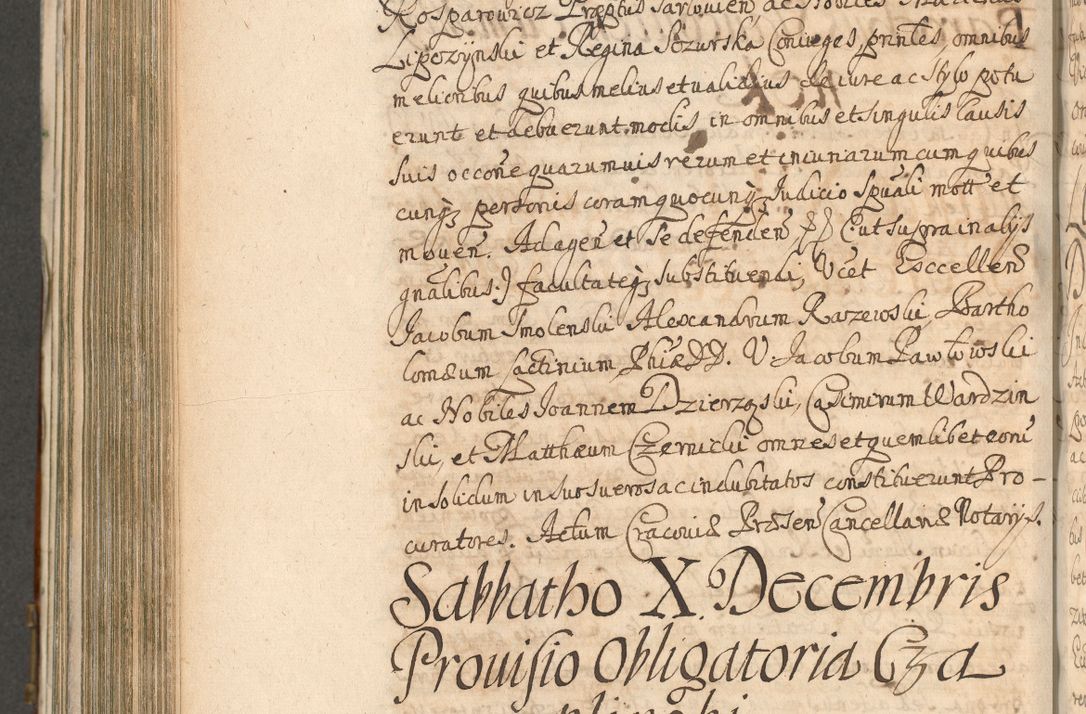 Lipczynski et Regina Pozurska Coniuges, pntes, omnibus
melioribus quibus melius et validius de iure ac stylo potu
erunt et debuerunt modis in omnibus et singulis causis
suis occone quarumuis rerum et iniuriarum cum quibus
cunq; personis coram quocunq; Iudicio Spuali mott et
mouen. Ad agen et se defenden (ut supra in alijs
gnalibus.) facultateq; substituendi, Vcet Exccellen
Jacobum Smolenski Alexandrum Raszewski, Bartho
lomæum Lactinium, Phiæ DD. V Jacobum Pawłowski
ac Nobiles Joannem Dzierzgski, Casimirum Wardzin
ski, et Matthæum Czernicki omnes et quemlibet eorũ
in solidum in suos veros ac indubitatos constituerunt Pro-
curatores. Actum Cracoviæ Præsen Cancellariæ Notarijs.
Sabbatho X. Decembris
Provisio Obligatoria Cza
plinski